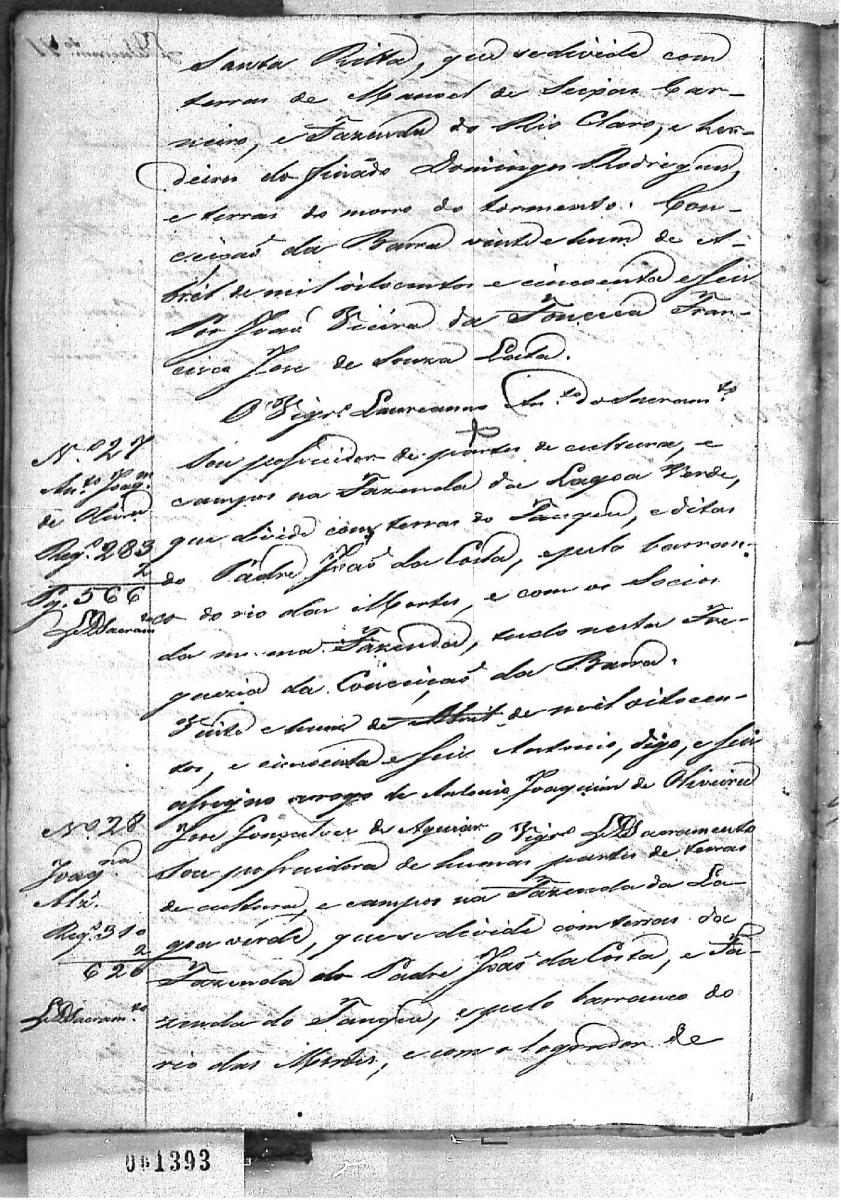 Santa Ritta, que se divide com
terras de Manoel de Seixas Car-
neiro, e Fazenda do Rio Claro, e her-
deiros do finado Domingos Rodrigues,
e terras do morro do tormento. Con-
ceiçaõ da Barra vinte e hum de A-
bril de mil oitocentos e cincoenta e seis
Por Joaõ Vieira da Fonceca Fran-
cisco Jose de Souza Costa.
O Vigr.º Laureanno An.to do Sacram.to
N.º 27
An.to Joaq.m
de Olivra
Reg.º 283
2
Pg. 566
Sacram.to
Sou possuidor de partes de cultura, e
campos na Fazenda da Lagoa Verde,
que divide com terras do Tanque, e ditas
do Padre Joaõ da Costa, e pelo barran-
co do rio das Mortes, e com os Socios
da mesma Fazenda, tudo nesta Fre-
guezia da Conceiçaõ da Barra.
Vinte e hum de Abril de mil oitocen-
tos, e cincoenta e seis Antonio, digo, e seis
assigno arrogo de Antonio Joaquim de Oliveira
Jose Gonçalves de Aguiar O Vigr.º Sacramento
N.º 28
Joaq.na
Alz.
Reg.º 310
2
620
Sacram.to
Sou possuidora de humas partes de terras
de cultura, e campos na Fazenda da La-
goa verde, que se divide com terras da
Fazenda do Padre Joaõ da Costa, e Fa-
zenda do Tanque, e pelo barranco do
rio das Mortes, e com o logrador de
061393